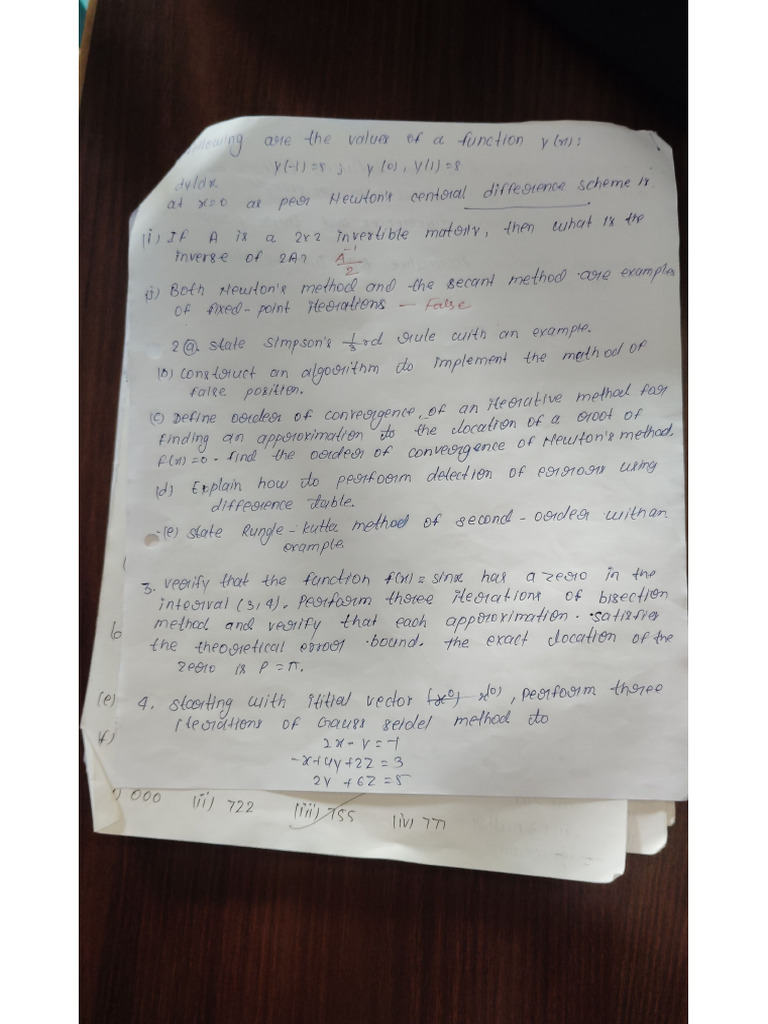 following are the values of a function y(x):
y(-1)=8 ; y(0), y(1)=8
dy/dx
at x=0 as per Newton's central difference scheme is
(i) If A is a 2x2 invertible matrix, then what is the
inverse of 2A? A⁻¹/2
(j) Both Newton's method and the secant method are examples
of fixed-point iterations - False
2 (a). State Simpson's 1/3 rd rule with an example.
(b) Construct an algorithm to implement the method of
false position.
(c) Define order of convergence, of an iterative method for
finding an approximation to the location of a root of
f(x)=0. find the order of convergence of Newton's method.
(d) Explain how to perform detection of errors using
difference table.
(e) State Runge-Kutta method of second-order with an
example
3. verify that the function f(x)= sinx has a zero in the
interval (3,4). Perform three iterations of bisection
method and verify that each approximation. satisfies
the theoretical error bound. The exact location of the
zero is P=π.
b
(e) 4. starting with ititial vector x⁽⁰⁾, perform three
f) iterations of Gauss seidel method to
2x-y=-1
-x+4y+2z=3
2y +6z=5
i) 000 (ii) 722 (iii) 755 (iv) 777